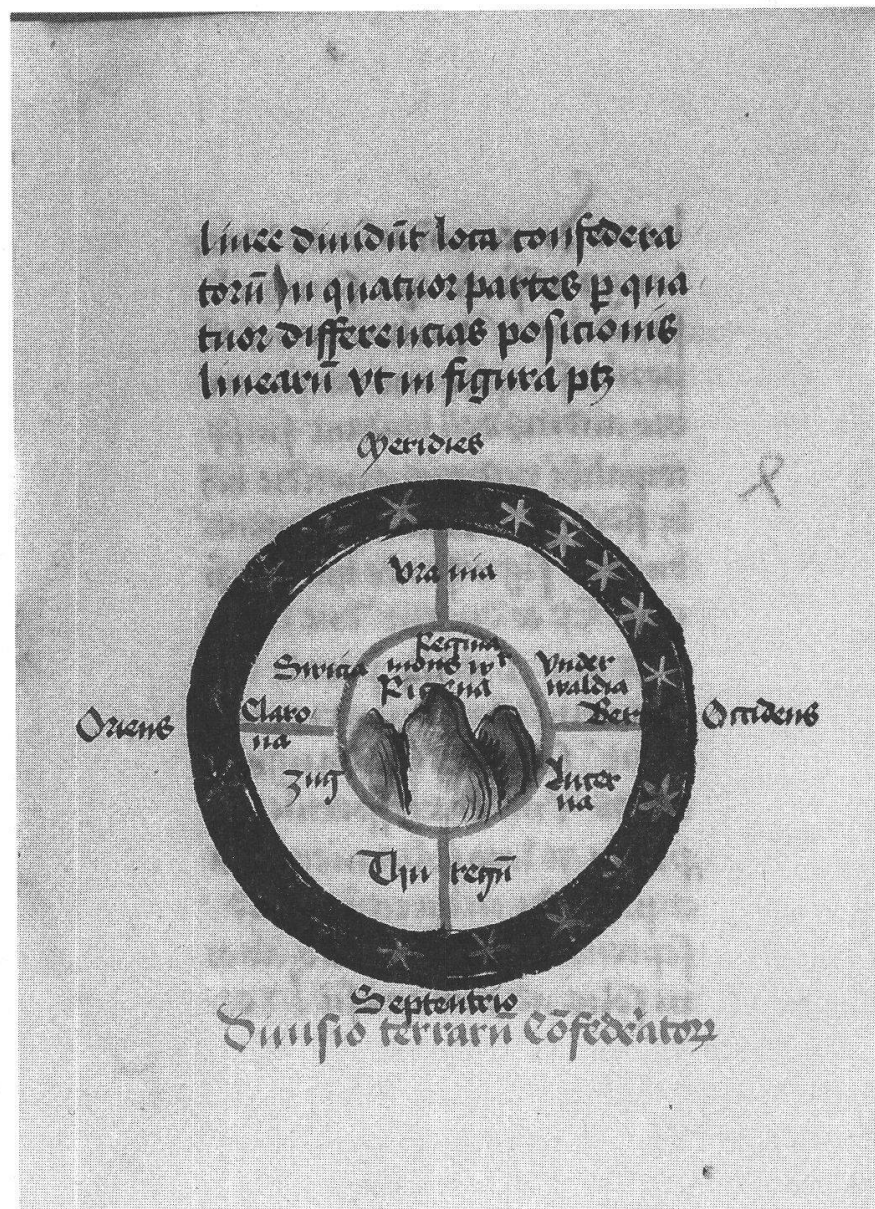 linee diuidūt loca confedera
torū in quatuor partes ꝑ qua
tuor differencias posicionis
linearū vt in figura ptꝫ
Meridies
Vrania
Regina
mons vͬ
Rigena
Switia
Vnder
waldia
Oriens
Claro
na
Bern
Occidens
Zug
Lucer
na
Thuregū
Septentrio
Diuisio terrarū Cōfederatoꝝ